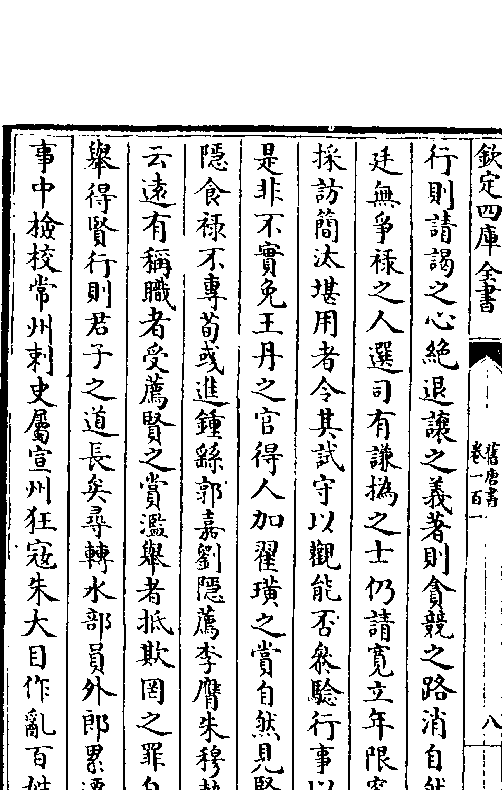 欽定四庫全書
舊唐書
卷一百一
八
行則請謁之心絶退讓之義著則貪競之路消自然
廷無爭禄之人選司有謙撝之士仍請寛立年限容
採訪簡汰堪用者令其試守以觀能否叅驗行事以
是非不實免王丹之官得人加翟璜之賞自然見賢
隱食禄不專荀彧進鍾繇郭嘉劉隠薦李膺朱穆
云遠有稱職者受薦賢之賞濫舉者抵欺罔之罪自
舉得賢行則君子之道長矣尋轉水部員外郎累遷
事中檢校常州刺史屬宣州狂寇朱大目作亂百姓